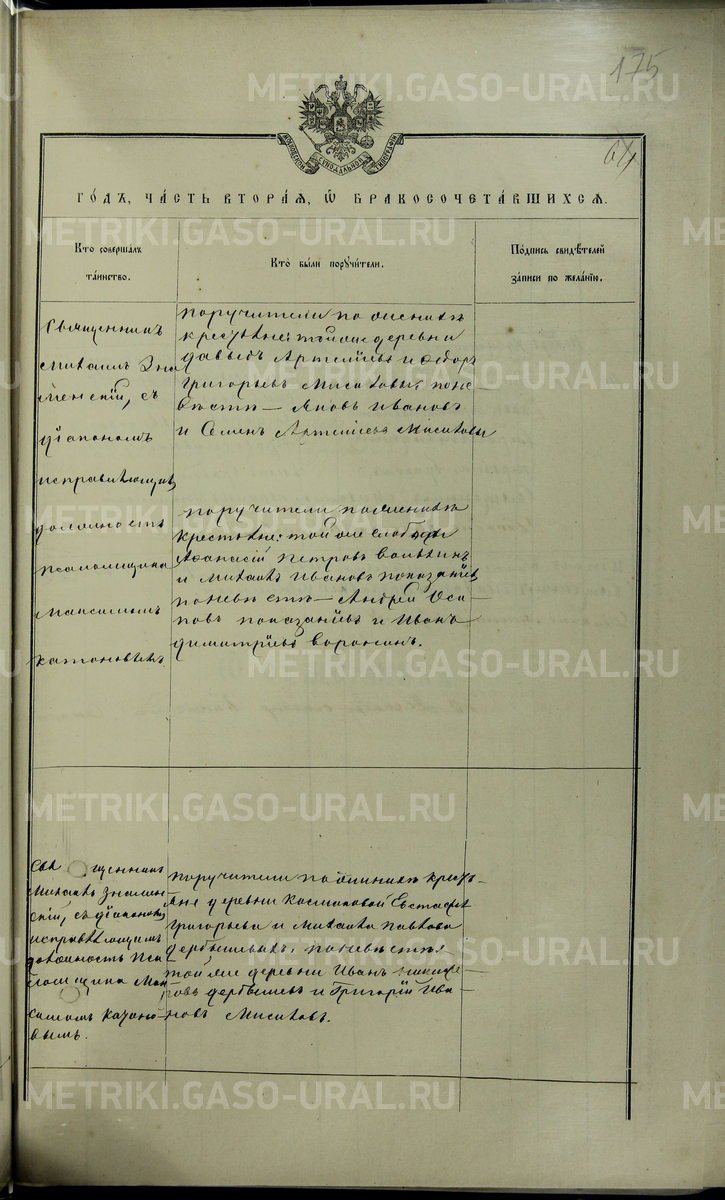 175
64
МОСКОВСКОЙ СѴНОДАЛЬНОЙ ТИПОГРАФІИ
ГО́ДЪ, ЧА́СТЬ ВТОРА́Я, Ѽ БРАКОСОЧЕТА́ВШИХСЯ.
Кто̀ соверша́лъ
та́инство.
Кто̀ бы́ли порꙋчи́тели.
По́дпись свидѣ́телей
за́писи по жела́нїю.
Священникъ
Михаилъ Зна
менскій, съ
діакономъ
исправляющимъ
должность
псаломщика
Максимомъ
поручители по женихѣ
крестьяне: той же деревни
Давыдъ Артеміевъ и Ѳедоръ
Григорьевъ Мисиковы; по не-
вѣстѣ — Яковъ Ивановъ
и Семенъ Артеміевъ Мисиковы
поручители по женихѣ
крестьяне: той же слободы
Аѳанасій Петровъ
и Михаилъ Ивановъ
по невѣстѣ — Андрей Оси
повъ и Иванъ
Димитріевъ Воронинъ.
Священникъ
Михаилъ Знамен-
скій, съ діакономъ
исправляющимъ
должность Пса
ломщика Мак
симомъ
вымъ.
поручители по женихѣ кресть-
яне деревни Космаковой Евстафій
Григорьевъ и Михаилъ Павловъ
Дербышевыхъ, по невѣстѣ:
той же деревни Иванъ Никифо-
ровъ Дербышевъ и Григорій Ива-
новъ Мисиковъ.
METRIKI.GASO-URAL.RU